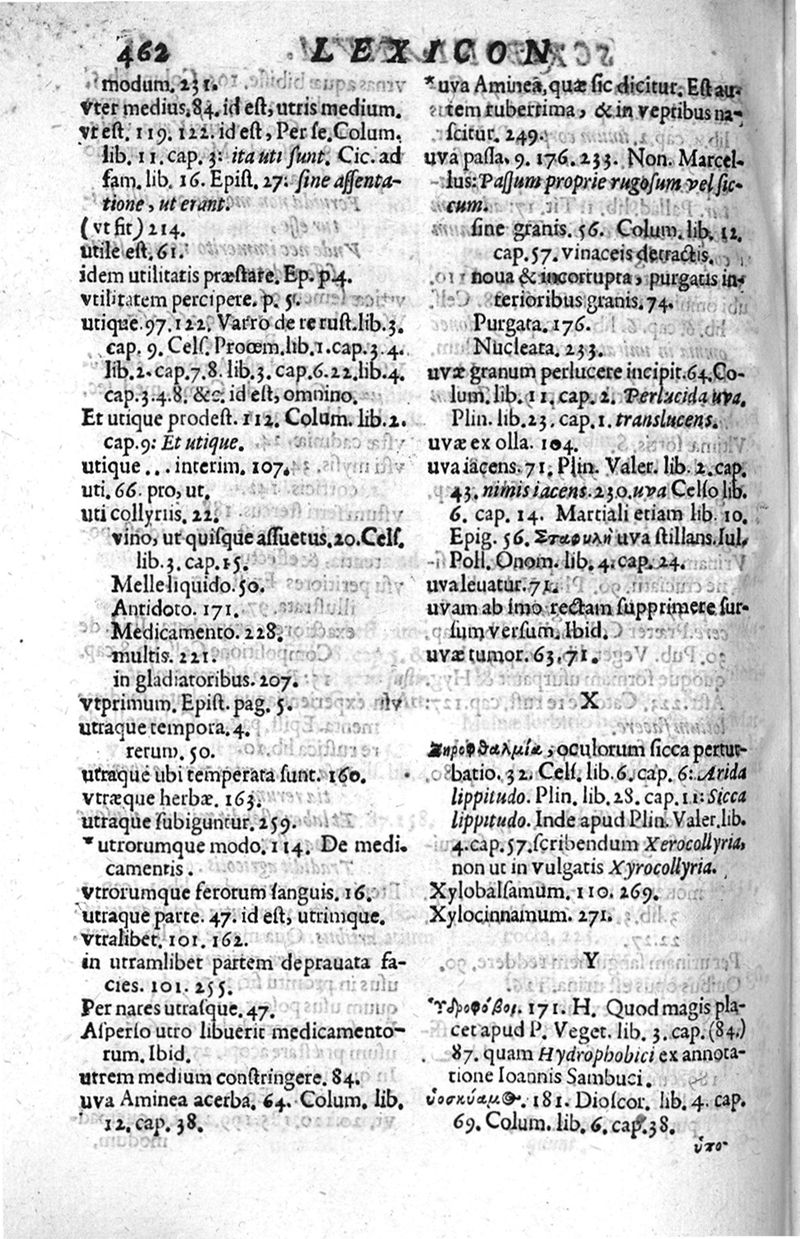 462 LEXICON
modum. 231.
vter medius. 84. id est, utris medium.
vt est. 119. 122. id est, Per se. Colum.
lib. 11. cap. 3: ita uti sunt. Cic. ad
fam. lib. 16. Epist. 27: sine assenta-
tione, ut erant.
(vt sit) 214.
utile est. 61.
idem utilitatis præstare. Ep. p. 4.
vtilitatem percipere. p. 5.
utique. 97. 122. Varro de re rust. lib. 3.
cap. 9. Cels. Prooem. lib. 1. cap. 3. 4.
lib. 2. cap. 7. 8. lib. 3. cap. 6. 22. lib. 4.
cap. 3. 4. 8. &c. id est, omnino.
Et utique prodest. 112. Colum. lib. 2.
cap. 9: Et utique.
utique... interim. 107.
uti. 66. pro, ut.
uti collyriis. 22.
vino, ut quisque assuetus. 20. Cels.
lib. 3. cap. 15.
Melle liquido. 50.
Antidoto. 171.
Medicamento. 228.
multis. 221.
in gladiatoribus. 207.
vtprimum. Epist. pag. 5.
utraque tempora. 4.
rerum. 50.
utraque ubi temperata sunt. 160.
vtræque herbæ. 163.
utraque subiguntur. 259.
* utrorumque modo. 114. De medi-
camentis.
vtrorumque ferorum sanguis. 16.
utraque parte. 47. id est, utrimque.
vtralibet. 101. 162.
in utramlibet partem deprauata fa-
cies. 101. 255.
Per nares utrasque. 47.
Asperso utro libuerit medicamento-
rum. Ibid.
utrem medium constringere. 84.
uva Aminea acerba. 64. Colum. lib.
12. cap. 38.
* uva Aminea, quæ sic dicitur. Est au-
tem ruberrima, & in vepribus na-
scitur. 249.
uva passa. 9. 176. 233. Non. Marcel-
lus: Passum proprie rugosum vel sic-
cum.
sine granis. 56. Colum. lib. 12.
cap. 57. vinaceis detractis.
noua & incorrupta, purgatis in-
terioribus granis. 74.
Purgata. 176.
Nucleata. 233.
uvæ granum perlucere incipit. 64. Co-
lum. lib. 11. cap. 2. Perlucida uva.
Plin. lib. 23. cap. 1. translucens.
uvæ ex olla. 104.
uva iacens. 71. Plin. Valer. lib. 2. cap.
43. nimis iacens. 230. uva Celso lib.
6. cap. 14. Martiali etiam lib. 10.
Epig. 56. Σταφυλὴ uva stillans. Iul.
Poll. Onom. lib. 4. cap. 24.
uva leuatur. 71.
uvam ab imo rectam supprimere sur-
sum versum. Ibid.
uvæ tumor. 63. 71.
X
Ξηροφθαλμία, oculorum sicca pertur-
batio. 32. Cels. lib. 6. cap. 6: Arida
lippitudo. Plin. lib. 28. cap. 11: Sicca
lippitudo. Inde apud Plin. Valer. lib.
4. cap. 57. scribendum Xerocollyria,
non ut in vulgatis Xyrocollyria.
Xylobalsamum. 110. 269.
Xylocinnamum. 271.
Y
Ὑδροφόβοι. 171. H. Quod magis pla-
cet apud P. Veget. lib. 3. cap. (84.)
87. quam Hydrophobici ex annota-
tione Ioannis Sambuci.
ὑοσκύαμος. 181. Dioscor. lib. 4. cap.
69. Colum. lib. 6. cap. 38.
ὑπο-